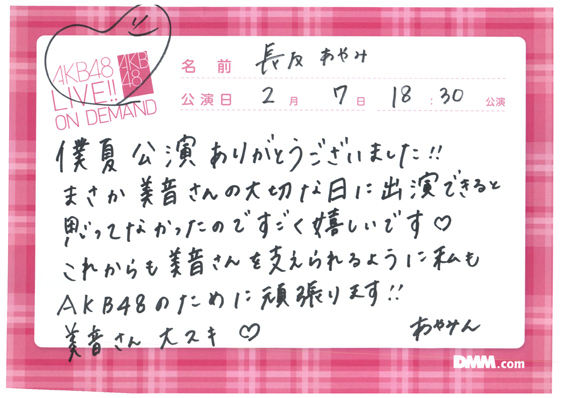 AKB48
LIVE!!
ON DEMAND
AKB
48
名前 長友 あやみ
公演日 2月 7日 18:30 公演
僕夏公演ありがとうございました!!
まさか美音さんの大切な日に出演できると
思ってなかったのですごく嬉しいです♡
これからも美音さんを支えられるように私も
AKB48のために頑張ります!!
美音さん大スキ♡
あやみん
DMM.com